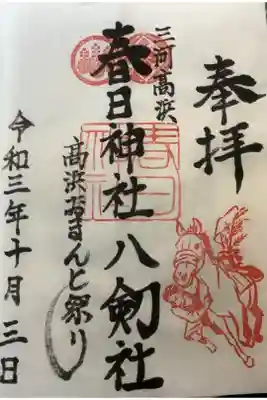 奉拝
三河高浜
春日神社八剱社
高浜おまんと祭り
令和三年十月三日
春日神社